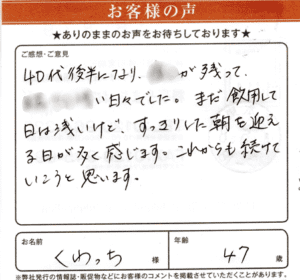 お客様の声
★ありのままのお声をお待ちしております★
ご感想・ご意見
40代後半になり、が残って、
い日々でした。まだ飲用して
日は浅いけど、すっきりした朝を迎え
る日が多く感じます。これからも続けて
いこうと思います。
お名前 くわっち 様 年齢 47 歳
※弊社発行の情報誌・販促物などにお客様のコメントを掲載させていただくことがあります。